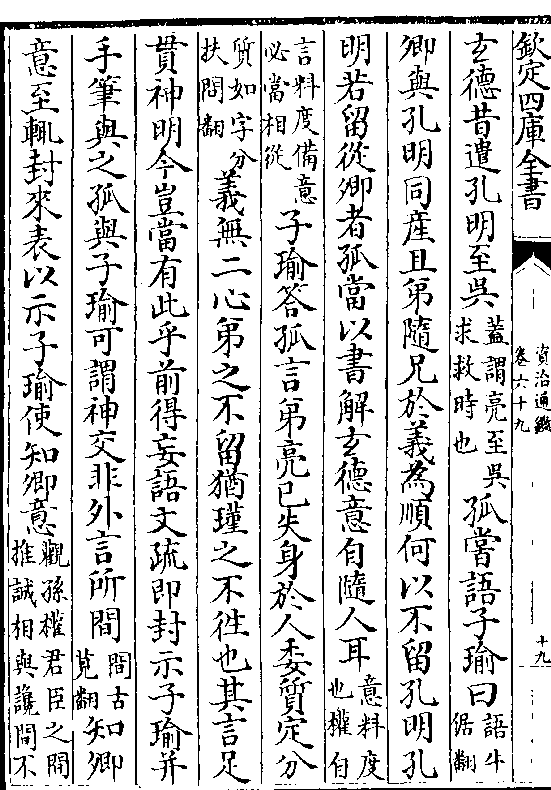 欽定四庫全書
資治通鑑
卷六十九
十九
玄德昔遣孔明至吳蓋謂亮至吳求救時也孤嘗語子瑜曰語牛倨翻
卿與孔明同産且第隨兄於義為順何以不留孔明孔
明若留從卿者孤當以書解玄德意自隨人耳意料度也權自
言料度備意必當相從子瑜答孤言第亮已失身於人委質定分
質如字分扶問翻義無二心第之不留猶瑾之不徃也其言足
貫神明今豈當有此乎前得妄語文疏即封示子瑜并
手筆與之孤與子瑜可謂神交非外言所間間古莧翻知卿
意至輒封來表以示子瑜使知卿意觀孫權君臣之間推誠相與讒間不